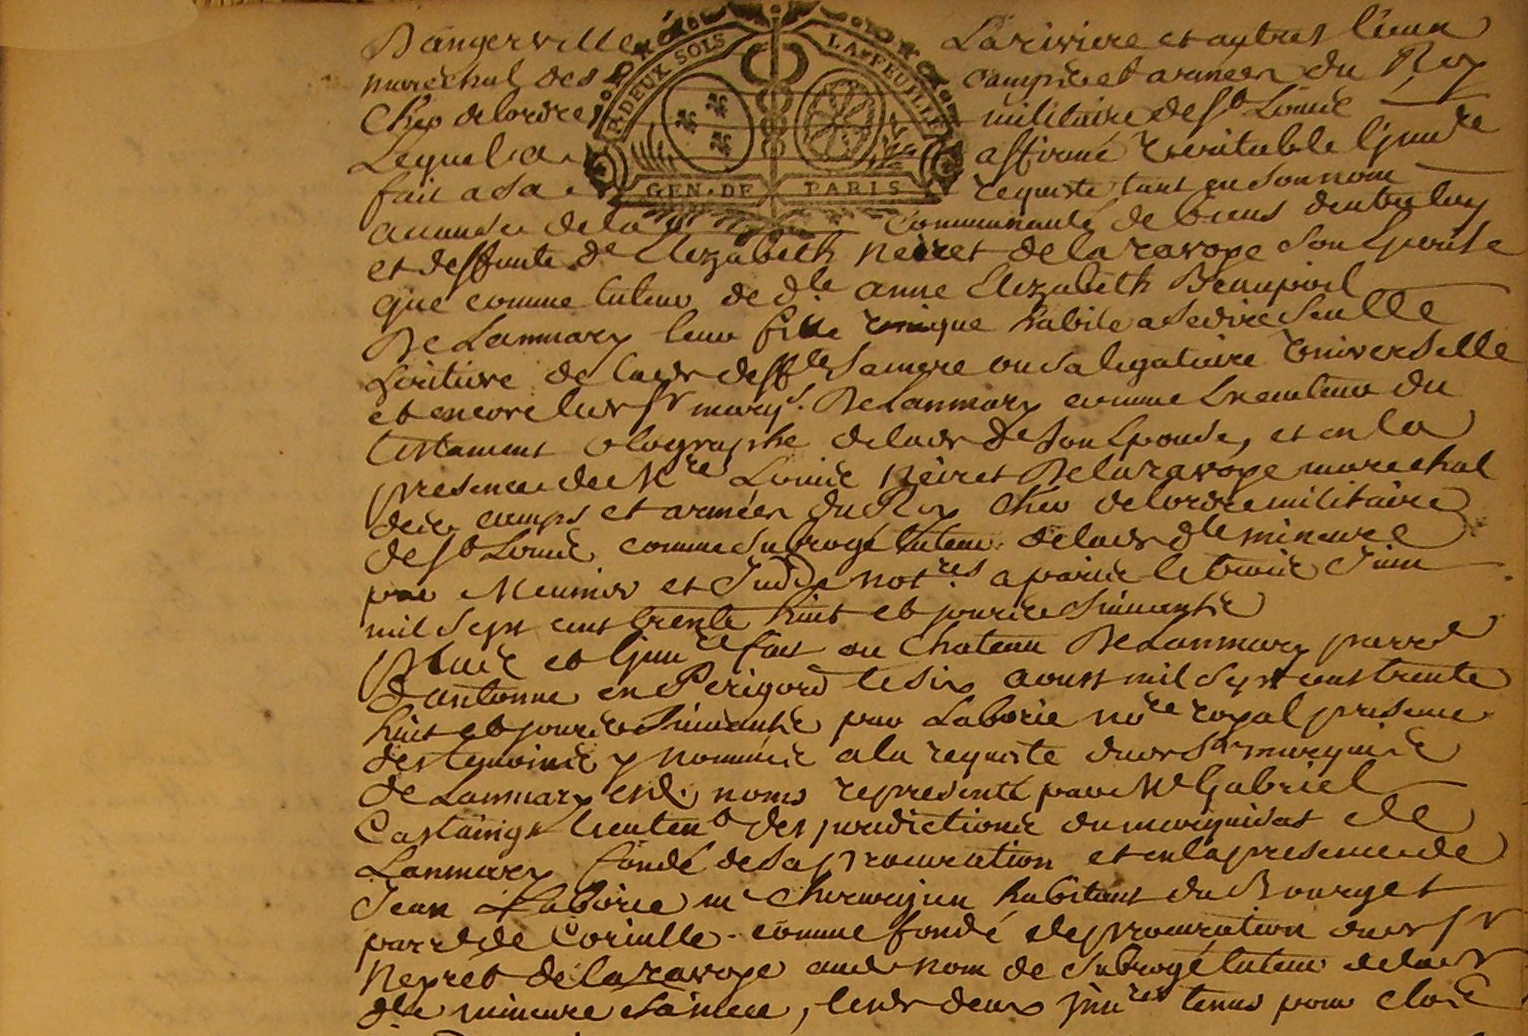 Dangerville Lariviere et autres lieux
marechal des camps et armées du Roy
Cher de lordre militaire de St Louis
Lequel a affirmé veritable lynvre
fait a sa requeste tant en son nom
a cause de la communauté de biens dentre luy
et deffunte de Elizabeth Neiret de la ravoye son Epouse
que comme tuteur de dlle anne Elizabeth Beaupoil
De Lanmary leur fille unique habile a se dire seulle
heritiere de lad deffte sa mere ou sa legataire universelle
et encore led Sr marqs. De Lanmary comme Executeur du
testament olographe de lad de son Epouse, et en la
presence de Mre Louis Neiret De la ravoye marechal
des camps et armées du Roy Cher de lordre militaire
de St Louis comme subrogé tuteur de lad dlle mineure
par Meunier et Judde notres a paris le trois Juin
mil sept cent trente huit et jours suivants
Plus et lynvre fait au chateau De Lanmary parre
dantonne en Perigord le six aoust mil sept cens trente
huit et jours suivants par Laborie nore royal presence
des temoins y nommés a la requeste dud Sr marquis
de Lanmary esd. noms representé par Me Gabriel
Castaing Lieutent des juridictions du marquisat de
Lanmary fondé de sa procuration et en la presence de
Jean Laborie me chirurgien habitant du Bourg et
parre de Cornille comme fondé de procuration dud Sr
Neyret de la ravoye aud nom de subrogé tuteur de lad
dlle mineure sa niece, lesd deux ynvres tenus pour clos
DEUX SOLS LA FEUILLE
GEN. DE PARIS